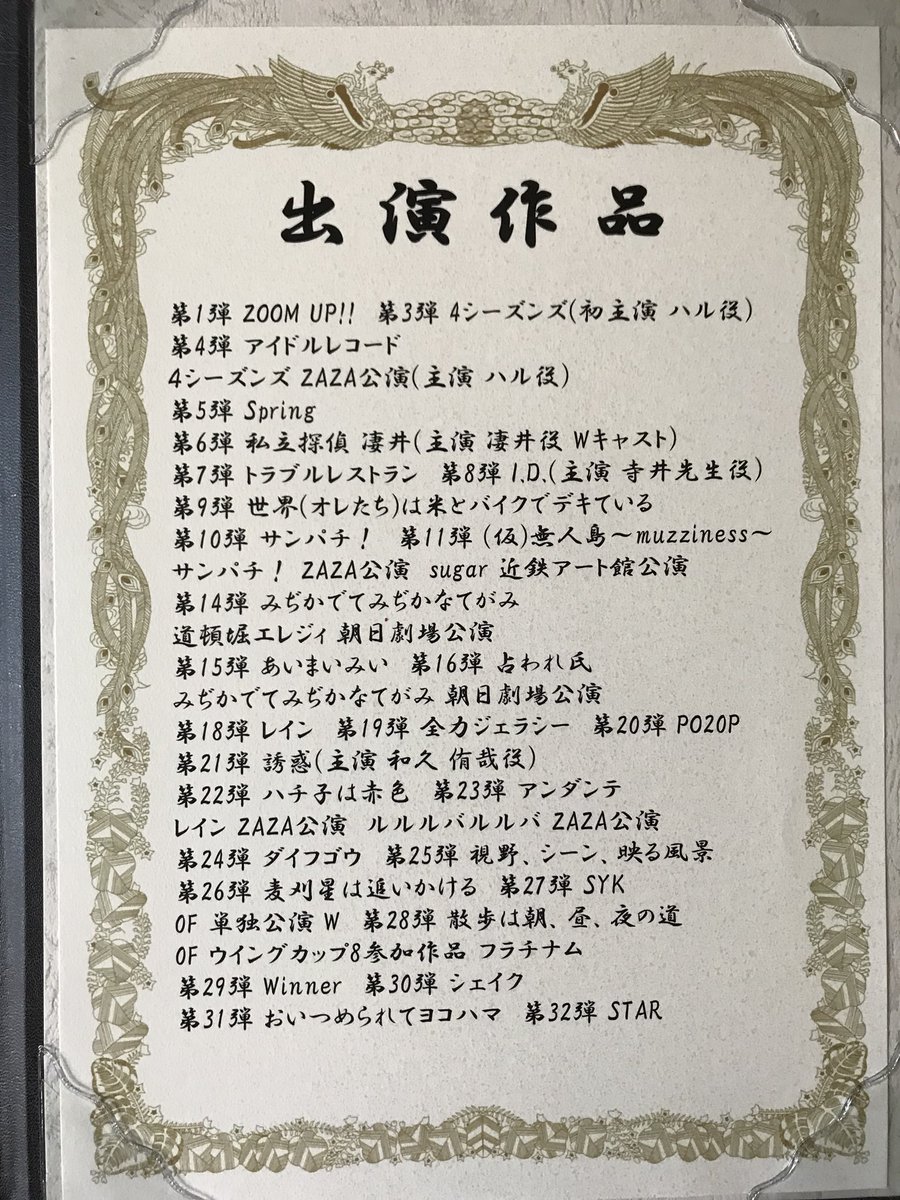 出演作品
第1弾 ZOOM UP!! 第3弾 4シーズンズ(初主演 ハル役)
第4弾 アイドルレコード
4シーズンズ ZAZA公演(主演 ハル役)
第5弾 Spring
第6弾 私立探偵 凄井(主演 凄井役 Wキャスト)
第7弾 トラブルレストラン 第8弾 I.D.(主演 寺井先生役)
第9弾 世界(オレたち)は米とバイクでデキている
第10弾 サンパチ! 第11弾 (仮)無人島〜muzziness〜
サンパチ! ZAZA公演 sugar 近鉄アート館公演
第14弾 みぢかでてみぢかなてがみ
道頓堀エレジィ 朝日劇場公演
第15弾 あいまいみい 第16弾 占われ氏
みぢかでてみぢかなてがみ 朝日劇場公演
第18弾 レイン 第19弾 全力ジェラシー 第20弾 PO20P
第21弾 誘惑(主演 和久 侑哉役)
第22弾 ハチ子は赤色 第23弾 アンダンテ
レイン ZAZA公演 ルルルバルルバ ZAZA公演
第24弾 ダイフゴウ 第25弾 視野、シーン、映る風景
第26弾 麦刈星は追いかける 第27弾 SYK
OF 単独公演 W 第28弾 散歩は朝、昼、夜の道
OF ウイングカップ8参加作品 フラチナム
第29弾 Winner 第30弾 シェイク
第31弾 おいつめられてヨコハマ 第32弾 STAR